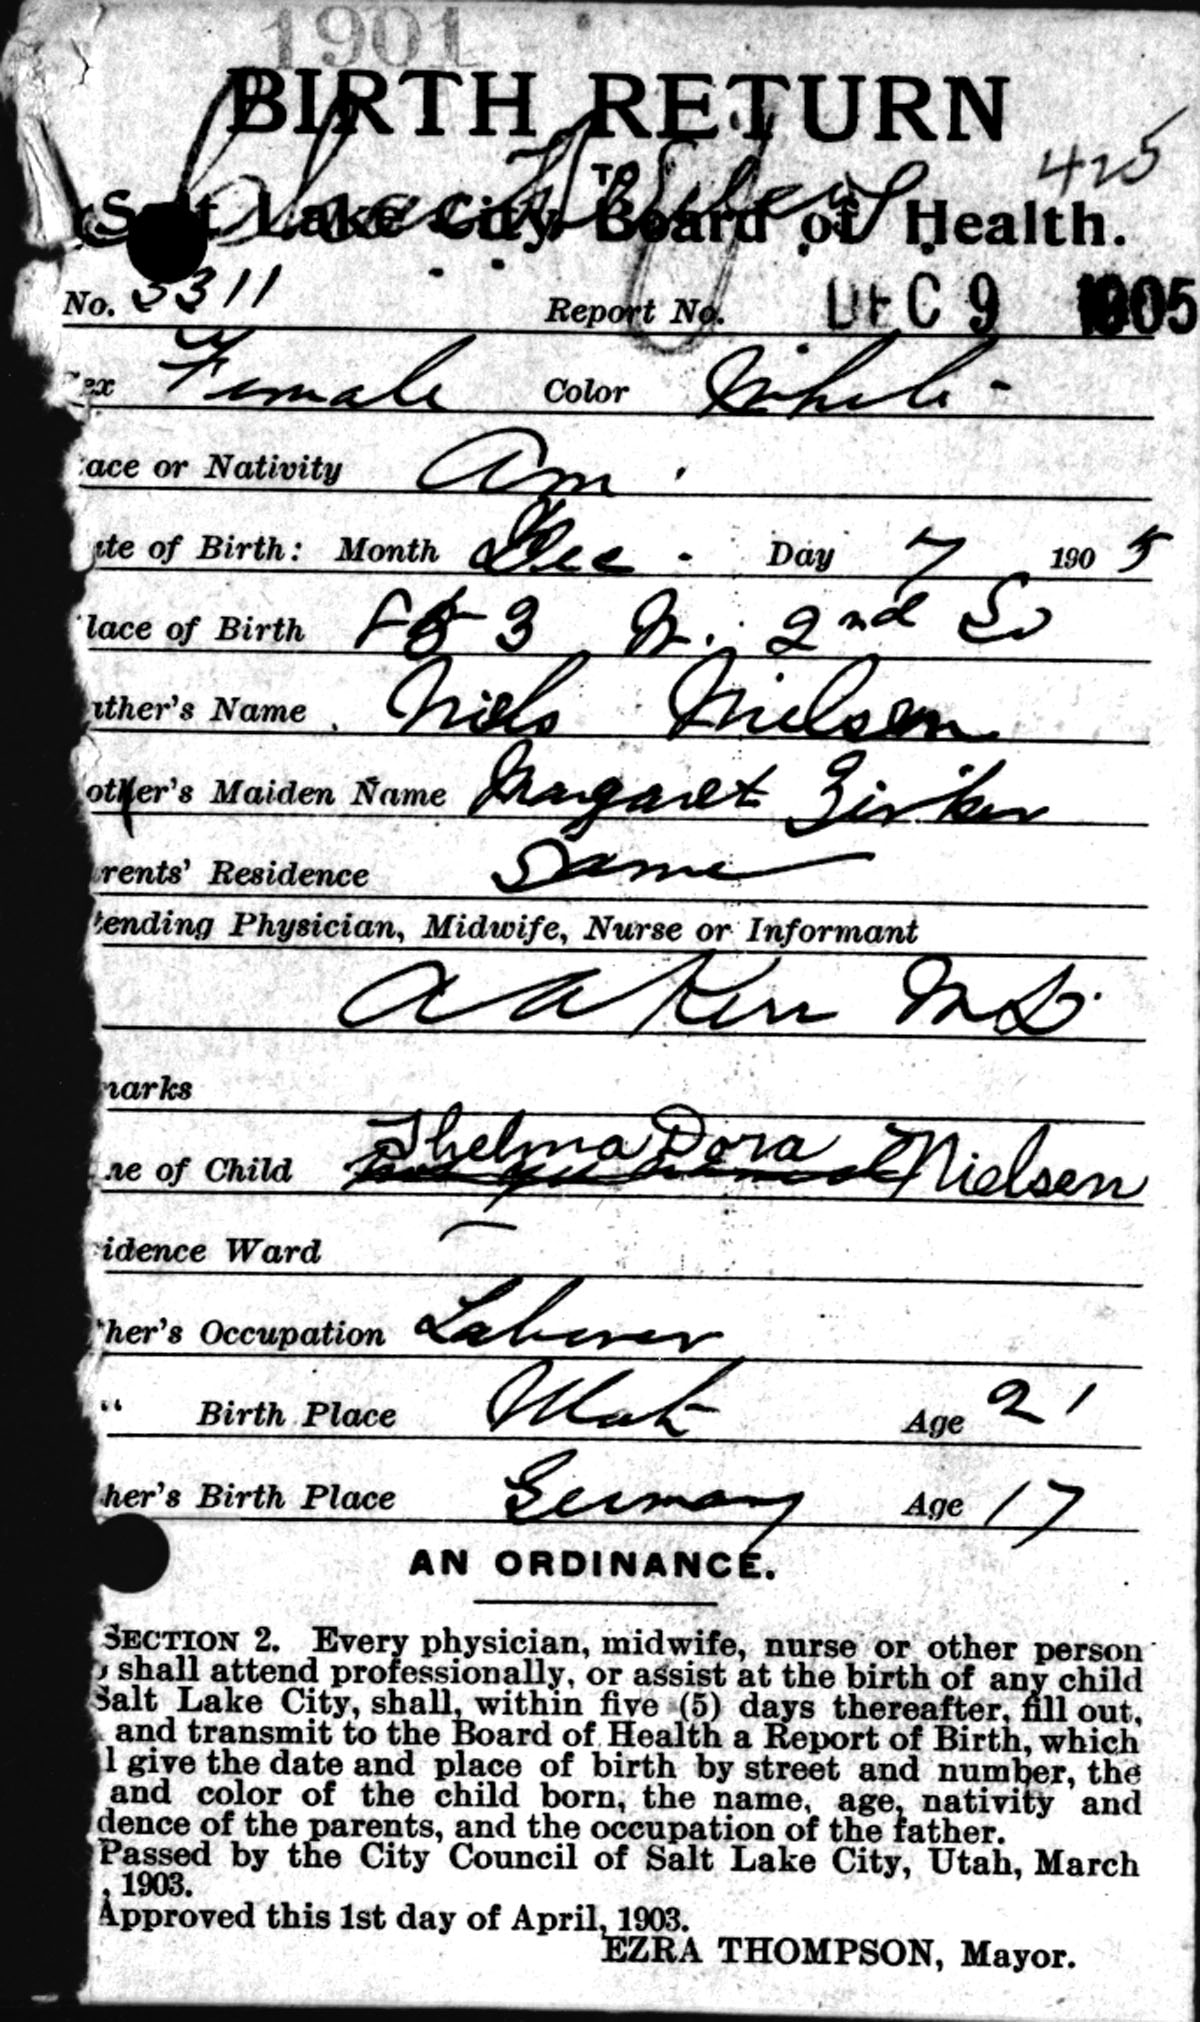 1901
BIRTH RETURN
TO
Salt Lake City Board of Health.
425
No. 3311 Report No. DEC 9 1905
ex Female Color White -
ace or Nativity Am.
te of Birth: Month Dec. Day 7 1905
lace of Birth 3 W. 2nd So
ther's Name Niels Nielsen
other's Maiden Name Margaret
rents' Residence Same
tending Physician, Midwife, Nurse or Informant
A A Kerr M D.
marks
ne of Child Thelma Dora Nielsen
idence Ward
her's Occupation Laborer
" Birth Place Utah Age 21
her's Birth Place Germany Age 17
AN ORDINANCE.
SECTION 2. Every physician, midwife, nurse or other person
shall attend professionally, or assist at the birth of any child
Salt Lake City, shall, within five (5) days thereafter, fill out,
and transmit to the Board of Health a Report of Birth, which
l give the date and place of birth by street and number, the
and color of the child born, the name, age, nativity and
dence of the parents, and the occupation of the father.
Passed by the City Council of Salt Lake City, Utah, March
, 1903.
Approved this 1st day of April, 1903.
EZRA THOMPSON, Mayor.